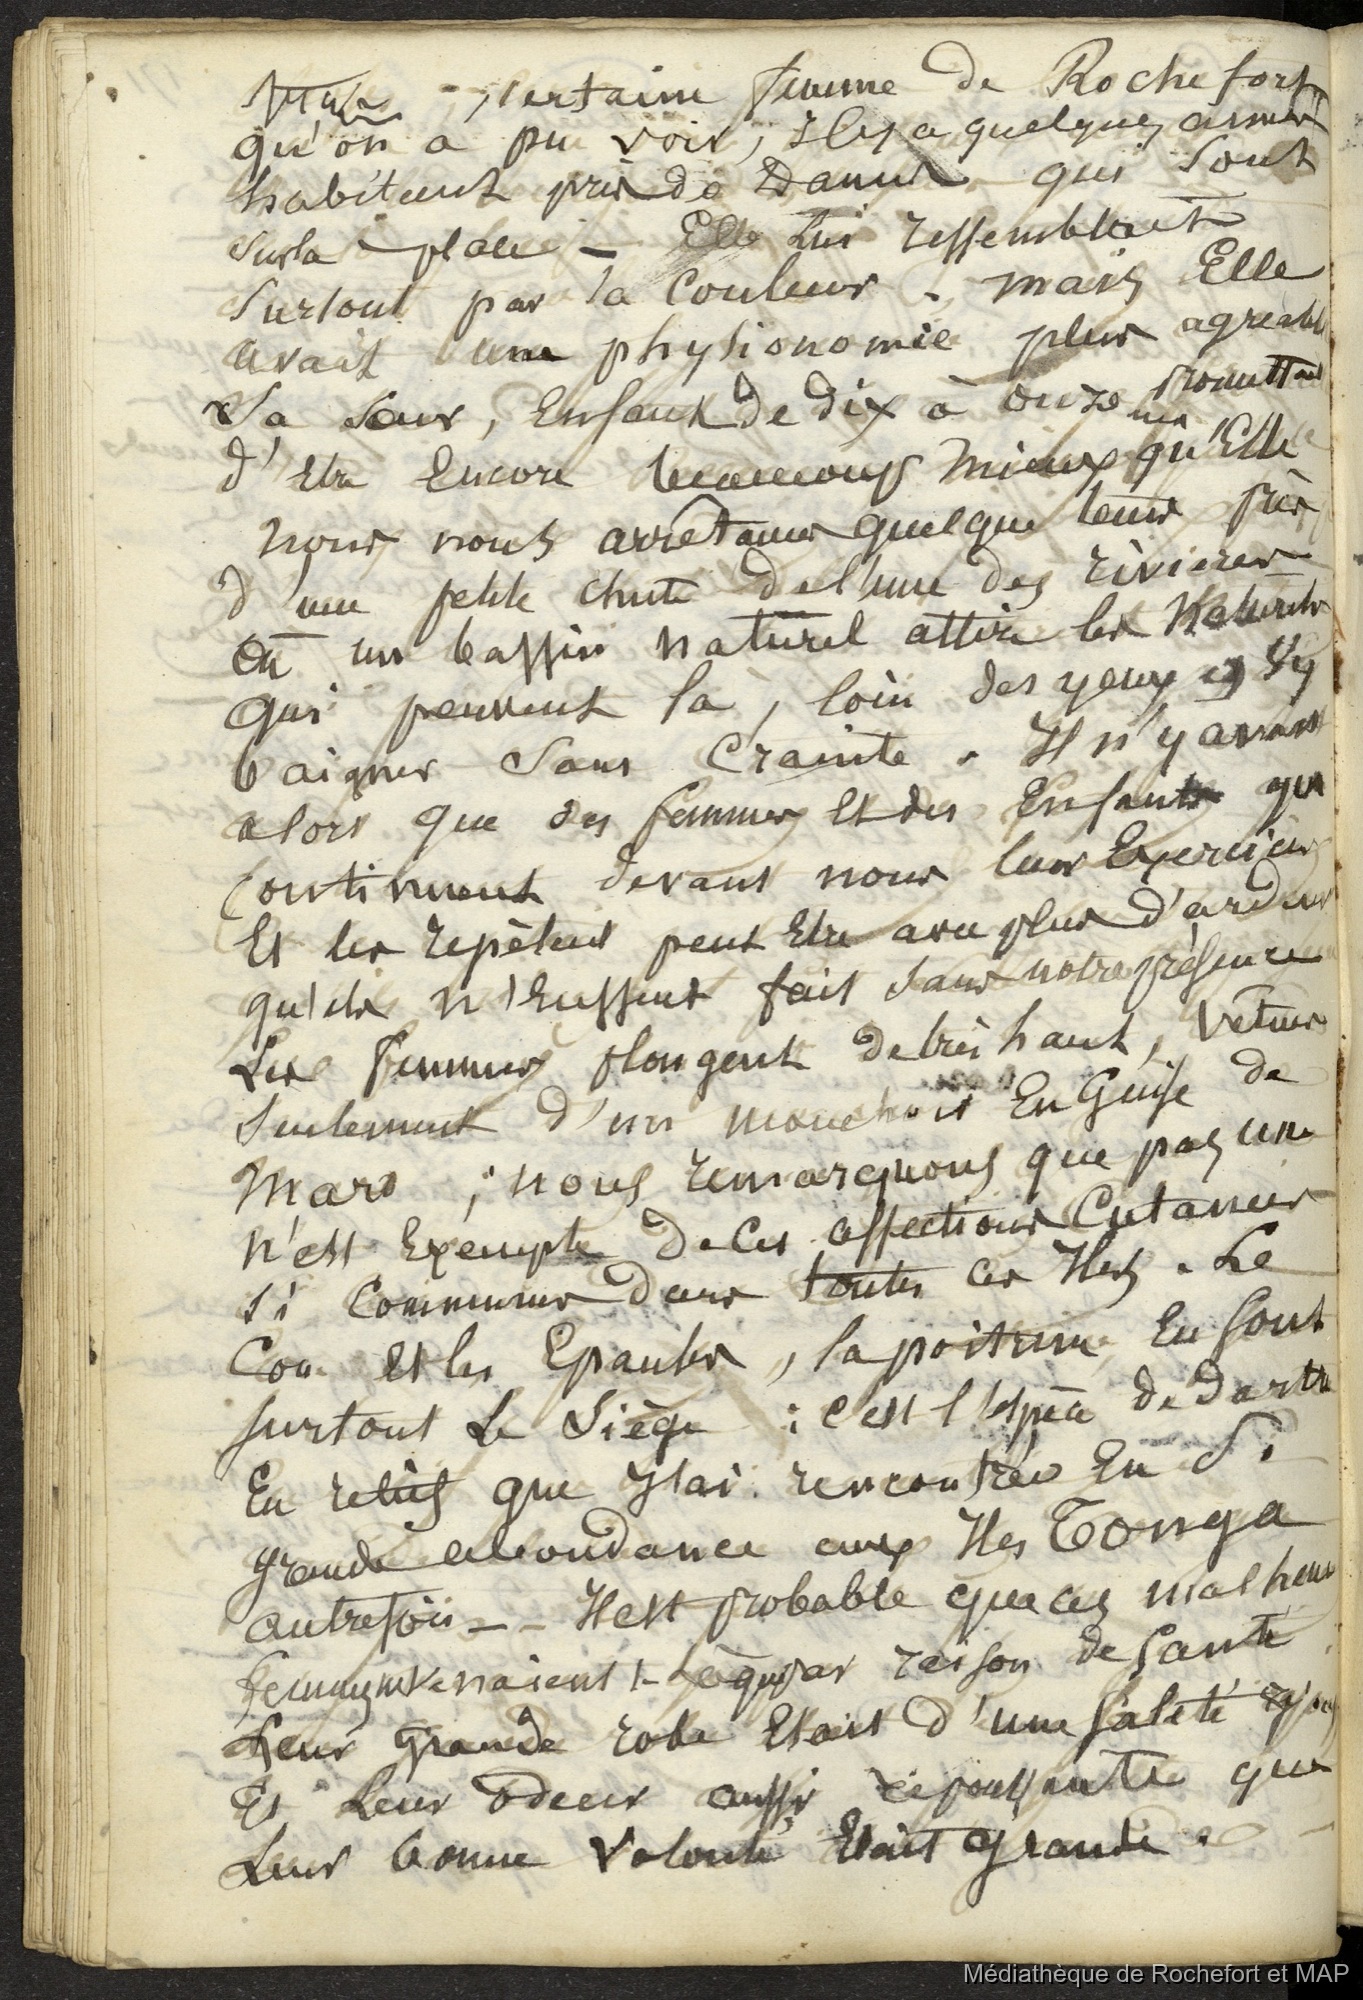 certaine femme de Rochefort
qu'on a pu voir, il y a quelques années
habitant près de qui sont
sur la place - Elle lui ressemblait
surtout par la couleur. mais Elle
avait une physionomie plus agréable
Sa Sœur, Enfant de dix à onze ans promettait
d'Etre Encore beaucoup mieux qu'Elle
nous nous arrêtames quelque tems près
d'une petite chute de l'une des rivières
où un bassin naturel attire les Naturels
qui peuvent là, loin des yeux s'y
baigner Sans Crainte. Il n'y avait
alors que des femmes Et des Enfants qui
Continuent devant nous leurs Exercices
Et les repètent peut Etre avec plus d'ardeur
qu'ils n'Eussent fait sans notre présence
Les femmes plongent de très haut, vêtues
Seulement d'un mouchoir En Guise de
Maro ; nous remarquons que pas une
n'est Exempte de ces affections Cutanées
si Communes dans toutes ces Iles. Le
Cou et les Epaules, la poitrine En sont
surtout Le Siège : c'est l'espèce de dartre
En relief que J'ai rencontrée En Si
grande abondance aux Iles Tonga
autrefois - - Il est probable que ces malheu
femmes venaient là que par raison de santé
Leur Grande robe Etait d'une saleté
Et Leur odeur aussi repoussante que
Leur bonne volonté Etait grande.
Médiathèque de Rochefort et MAP